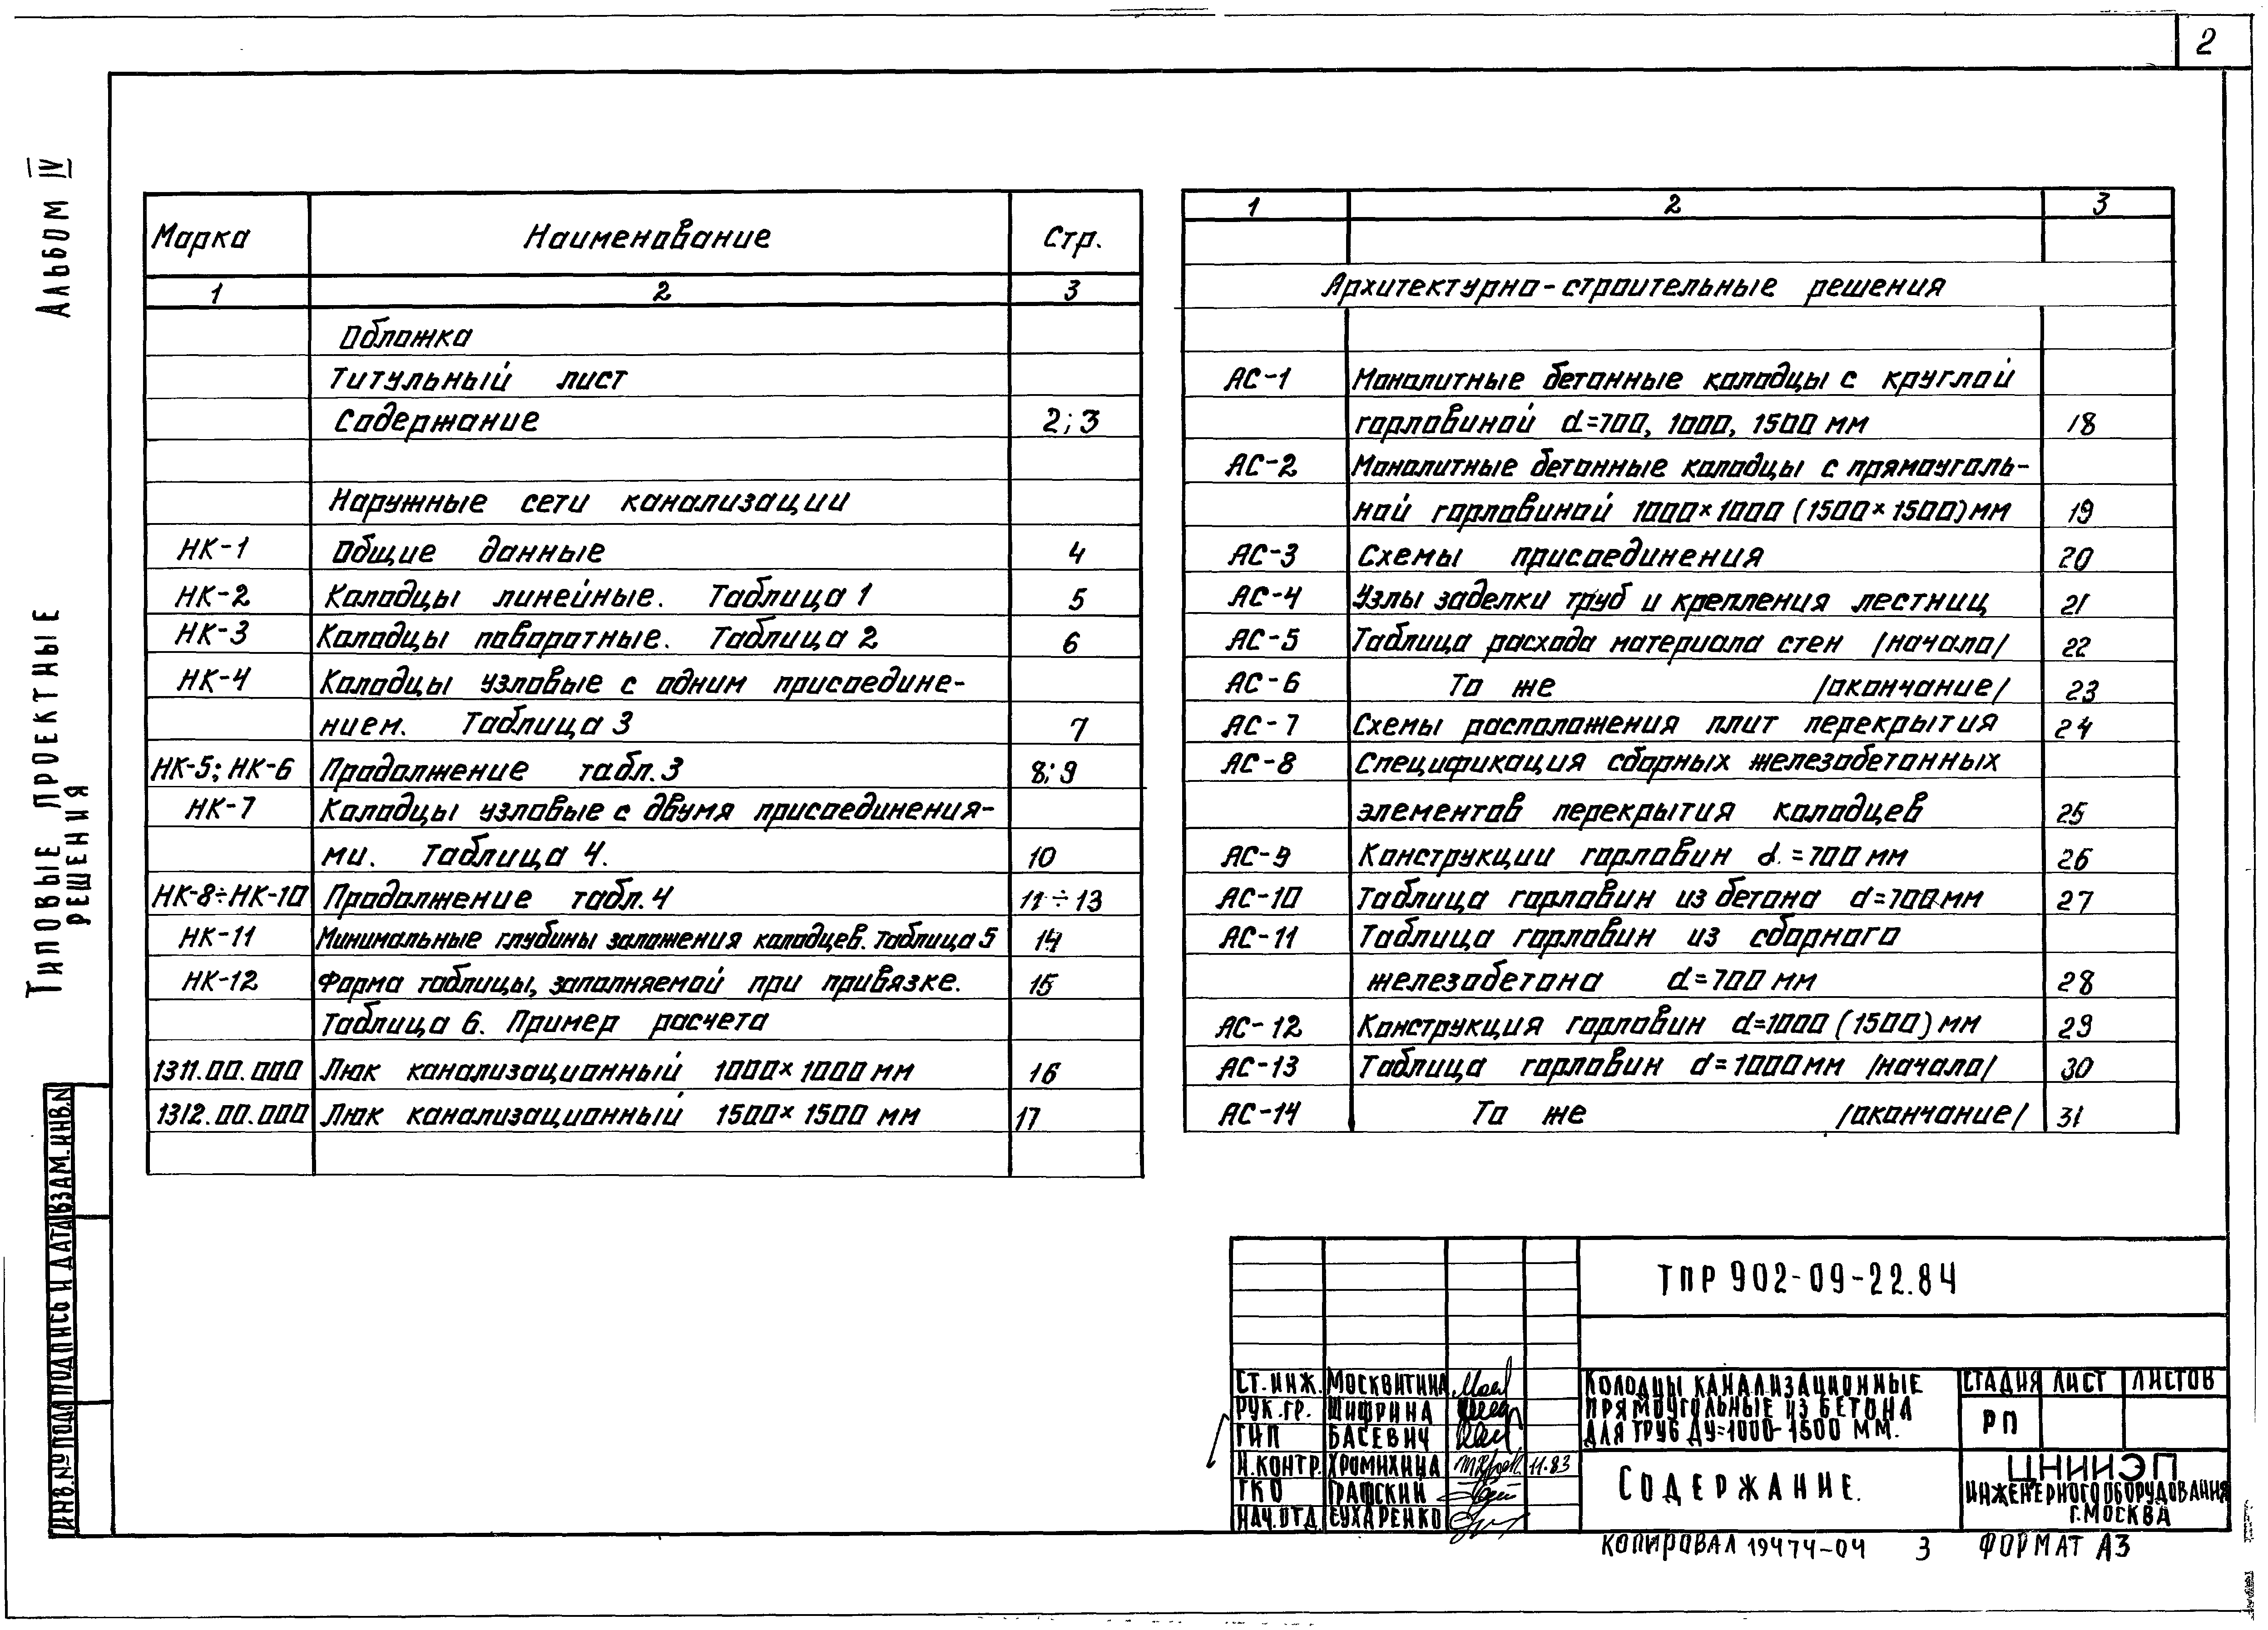 2
Альбом IV
Типовые проектные
решения
Марка Наименование Стр.
1 2 3
Обложка
Титульный лист
Содержание 2; 3
Наружные сети канализации
НК-1 Общие данные 4
НК-2 Колодцы линейные. Таблица 1 5
НК-3 Колодцы поворотные. Таблица 2 6
НК-4 Колодцы узловые с одним присоедине-
нием. Таблица 3 7
НК-5; НК-6 Продолжение табл. 3 8; 9
НК-7 Колодцы узловые с двумя присоединения-
ми. Таблица 4. 10
НК-8÷НК-10 Продолжение табл. 4 11÷13
НК-11 Минимальные глубины заложения колодцев. Таблица 5 14
НК-12 Форма таблицы, заполняемой при привязке. 15
Таблица 6. Пример расчета
1311.00.000 Люк канализационный 1000×1000 мм 16
1312.00.000 Люк канализационный 1500×1500 мм 17
1 2 3
Архитектурно-строительные решения
АС-1 Монолитные бетонные колодцы с круглой
горловиной d=700, 1000, 1500 мм 18
АС-2 Монолитные бетонные колодцы с прямоуголь-
ной горловиной 1000×1000 (1500×1500) мм 19
АС-3 Схемы присоединения 20
АС-4 Узлы заделки труб и крепления лестниц 21
АС-5 Таблица расхода материала стен /начало/ 22
АС-6 То же /окончание/ 23
АС-7 Схемы расположения плит перекрытия 24
АС-8 Спецификация сборных железобетонных
элементов перекрытия колодцев 25
АС-9 Конструкции горловин d.=700 мм 26
АС-10 Таблица горловин из бетона d=700мм 27
АС-11 Таблица горловин из сборного
железобетона d=700 мм 28
АС-12 Конструкция горловин d=1000 (1500) мм 29
АС-13 Таблица горловин d=1000мм /начало/ 30
АС-14 То же /окончание/ 31
ТПР 902-09-22.84
Ст. инж. Москвитина
Рук. гр. Шифрина
ГИП Басевич
Н. контр. Хромихина 11.83
ГКО Грашский
Нач. отд. Сухаренко
Колодцы канализационные
прямоугольные из бетона
для труб Ду=1000-1500 мм.
Стадия Лист Листов
РП
Содержание.
ЦНИИЭП
инженерного оборудования
г. Москва
Копировал 19474-04 3 Формат А3
Инв. № подл Подпись и дата Взам. инв. N